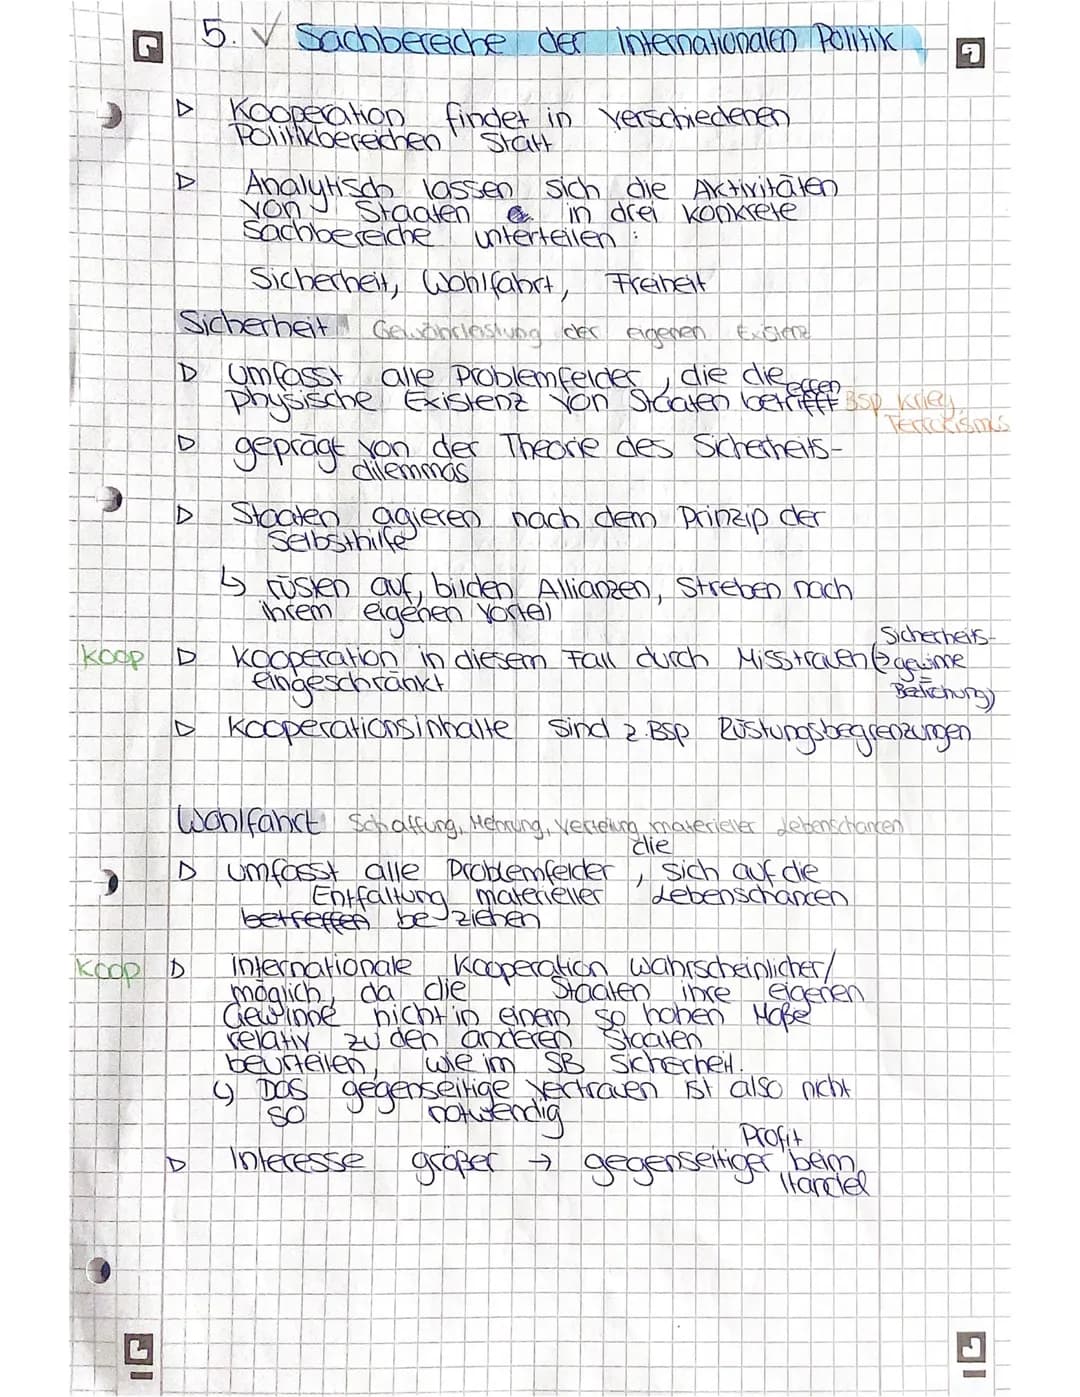 5. ✓ Sachbereiche der internationalen Politik
▷ Kooperation findet in verschiedenen
Politikbereichen statt
▷ Analytisch lassen sich die Aktivitäten
von Staaten in drei konkrete
Sachbereiche unterteilen:
Sicherheit, Wohlfahrt, Freiheit
Sicherheit Gewährleistung der eigenen Existenz
▷ umfasst alle Problemfelder, die die
physische Existenz von Staaten betrifft effen Bsp Krieg,
Terrorismus
▷ geprägt von der Theorie des Sicherheits-
dilemmas
▷ Staaten agieren nach dem Prinzip der
Selbsthilfe
↳ rüsten auf, bilden Allianzen, Streben nach
ihrem eigenen Vorteil
Koop ▷ Kooperation in diesem Fall durch Misstrauen (Sicherheits-
gewinne
eingeschränkt = Beziehung)
▷ Kooperationsinhalte sind z.Bsp Rüstungsbegrenzungen
Wohlfahrt Schaffung, Mehrung, Verteilung materieller Lebenschancen
▷ umfasst alle Problemfelder, die sich auf die
Entfaltung materieller Lebenschancen
betreffen beziehen
Koop ▷ internationale Kooperation wahrscheinlicher/
möglich, da die Staaten ihre eigenen
Gewinne nicht in einem so hohen Maße
relativ zu den anderen Staaten
beurteilen, wie im SB Sicherheit.
↳ Das gegenseitige Vertrauen ist also nicht
so notwendig
▷ Interesse größer → gegenseitiger Profit beim
Handel